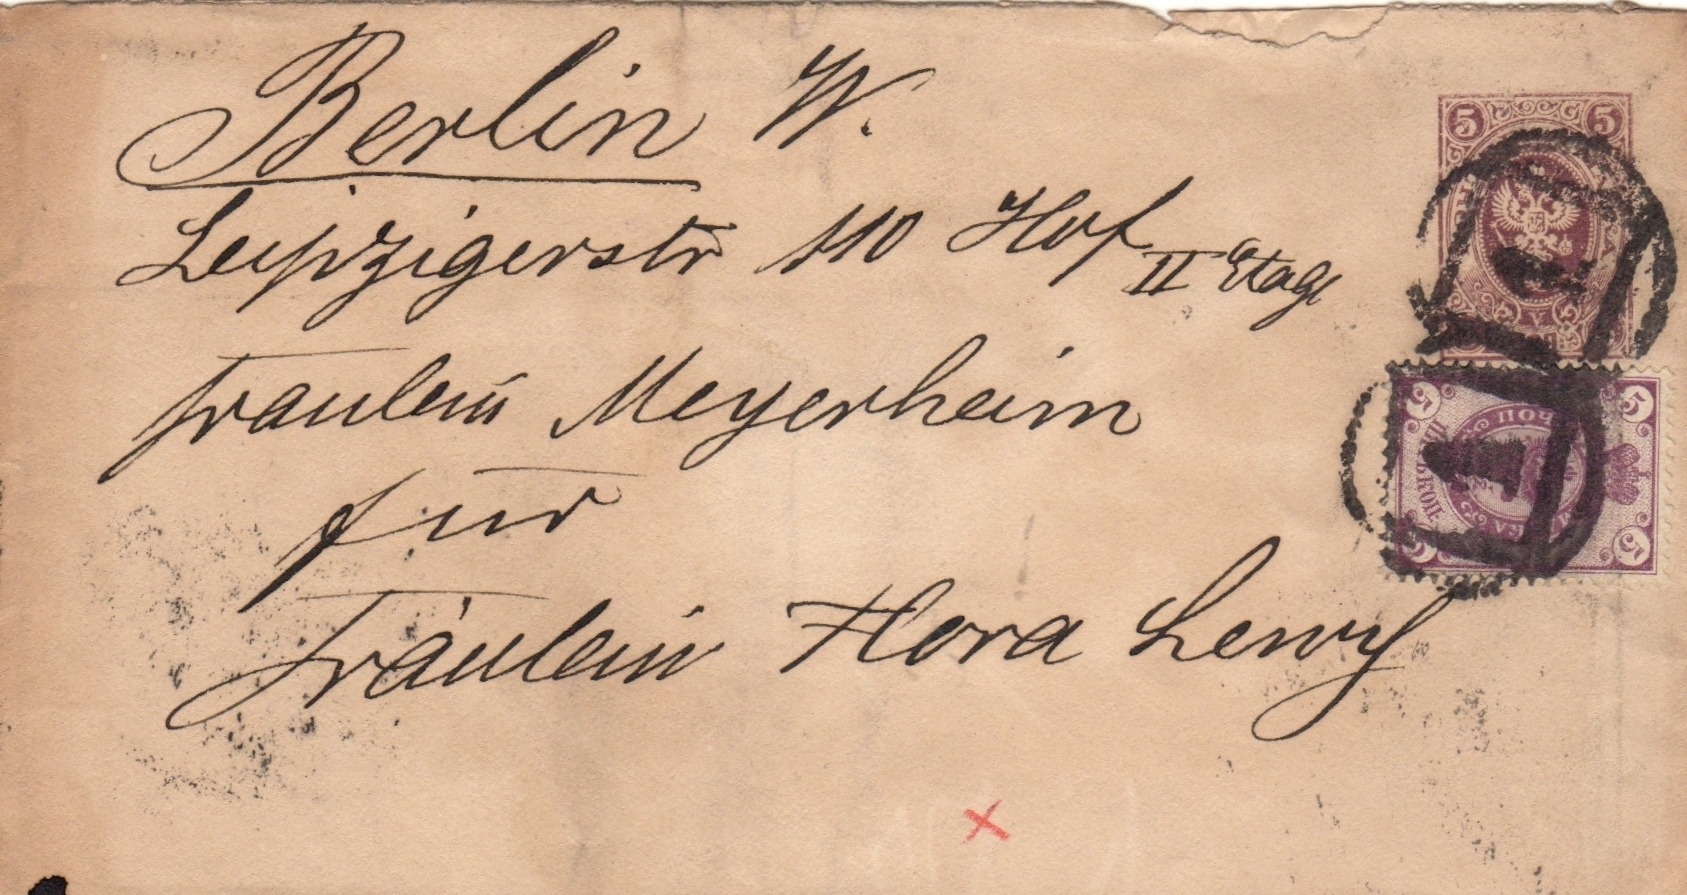 Berlin W.
Leipzigerstr 110 Hof
II Etage
Fräulein Meyerheim
für
Fräulein Flora Lewy
5 5
5 5
5 КОП
5
1
1